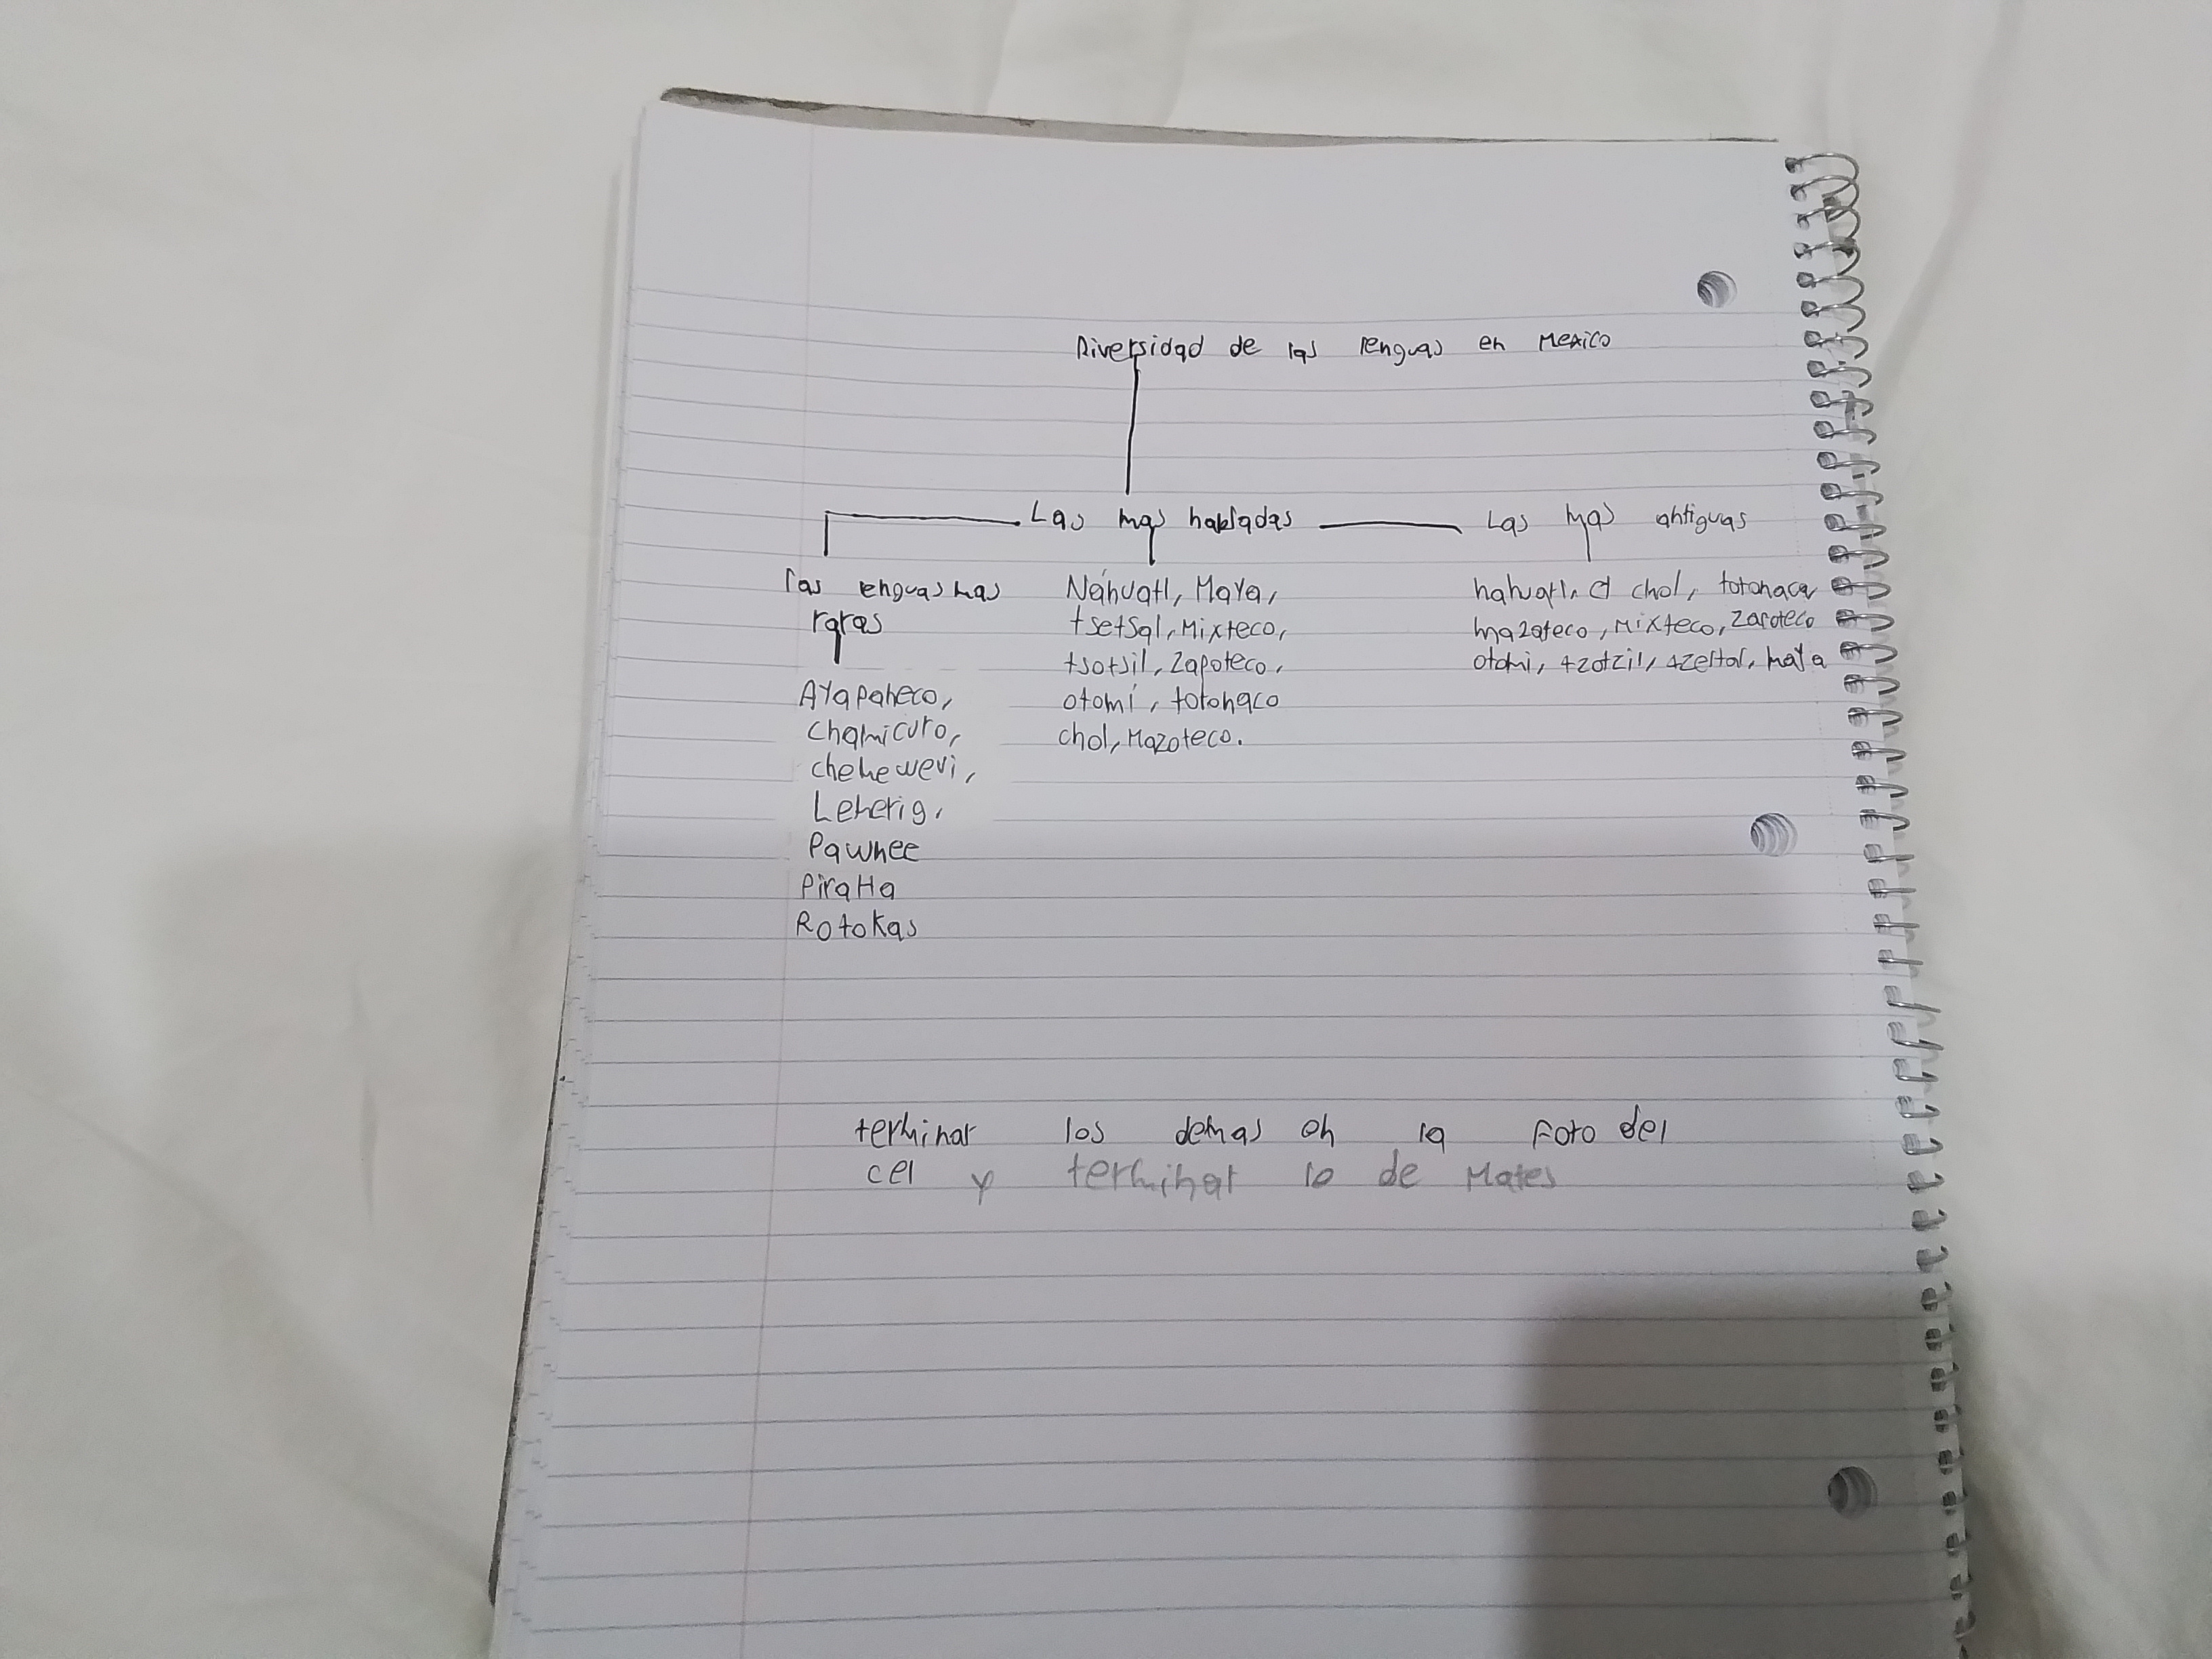 Diversidad de las lenguas en Mexico
Las mas habladas
Las mas antiguas
las lenguas mas
raras
Ayapaneco,
Chamicuro,
chemewevi,
Lemerig,
Pawnee
PiraHa
Rotokas
Náhuatl, Maya,
tsetsal, Mixteco,
tsotsil, Zapoteco,
otomí, totonaco
chol, Mazoteco.
nahuatl, el chol, totonaca
mazateco, Mixteco, Zapoteco
otomi, tzotzil, tzeltal, maya
terminar los demas en la Foto del
cel y terminar lo de Mates